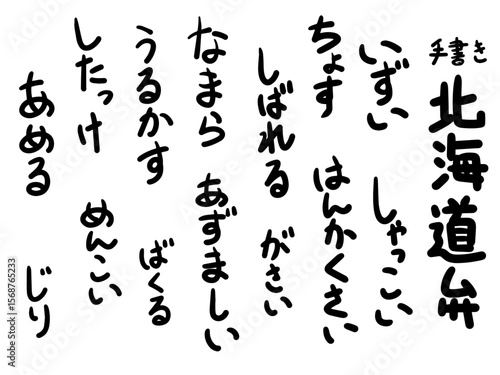 手書き
北海道弁
いずい
しゃっこい
ちょす
はんかくさい
しばれる
がさい
なまら
あずましい
うるかす
ばくる
したっけ
めんこい
あめる
じり
Adobe Stock | #1568765233